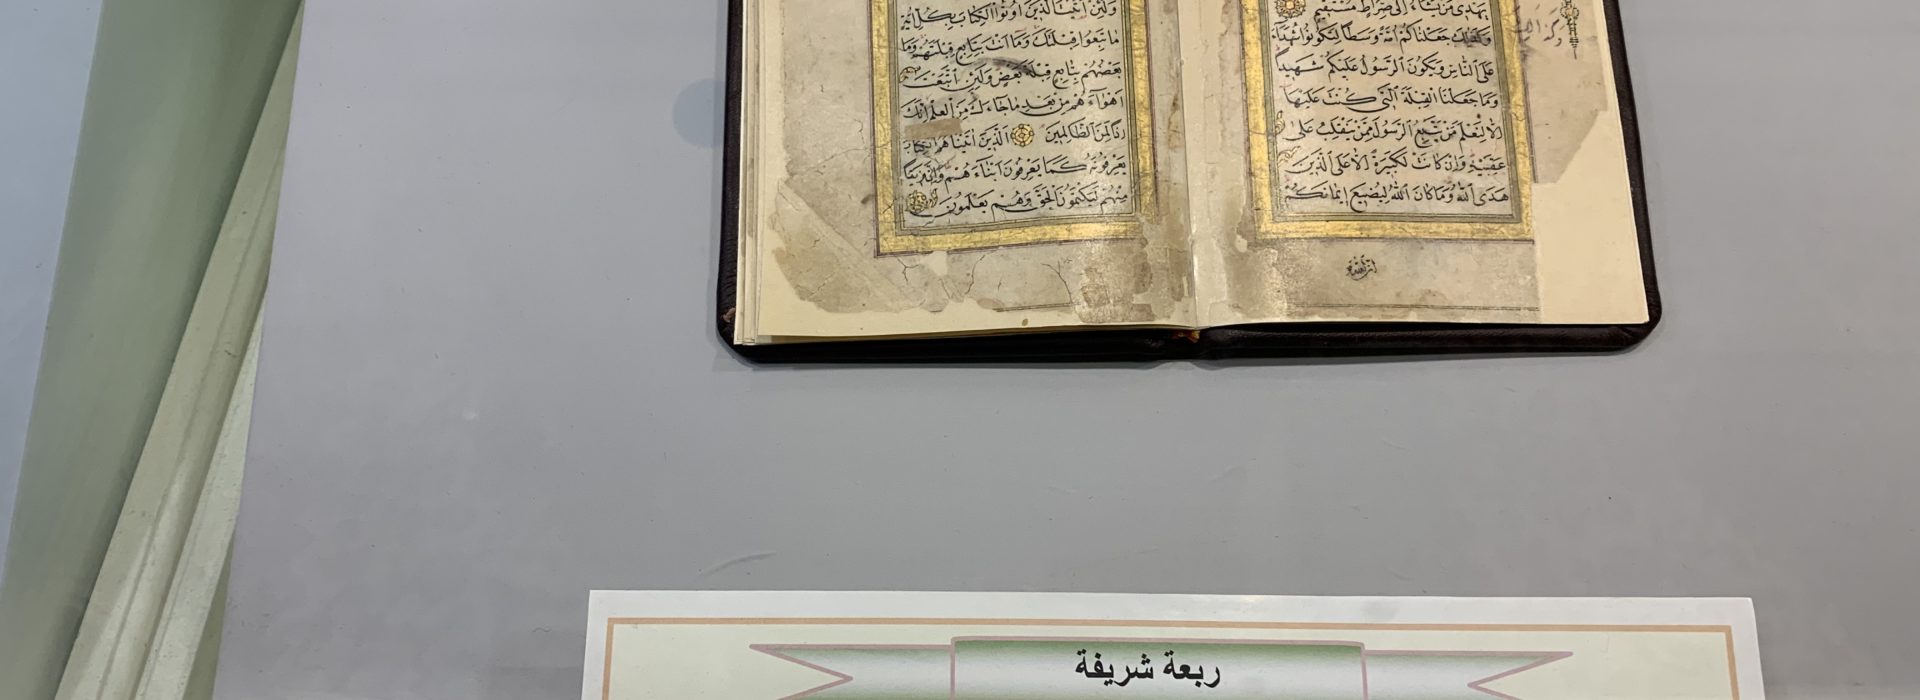 يهدى من يشاء الى صراط مستقيم
وكذلك جعلناكم امة وسطا لتكونوا شهداء
على الناس ويكون الرسول عليكم شهيدا
وما جعلنا القبلة التى كنت عليها
الا لنعلم من يتبع الرسول ممن ينقلب على
عقبيه وان كانت لكبيرة الا على الذين
هدى الله وما كان الله ليضيع ايمانكم
ولئن اتيت الذين اوتوا الكتاب بكل اية
ما تبعوا قبلتك وما انت بتابع قبلتهم وما
بعضهم بتابع قبلة بعض ولئن اتبعت
اهواءهم من بعد ما جاءك من العلم انك
اذا لمن الظالمين الذين اتيناهم الكتاب
يعرفونه كما يعرفون ابناءهم وان فريقا
منهم ليكتمون الحق وهم يعلمون
ربعة شريفة